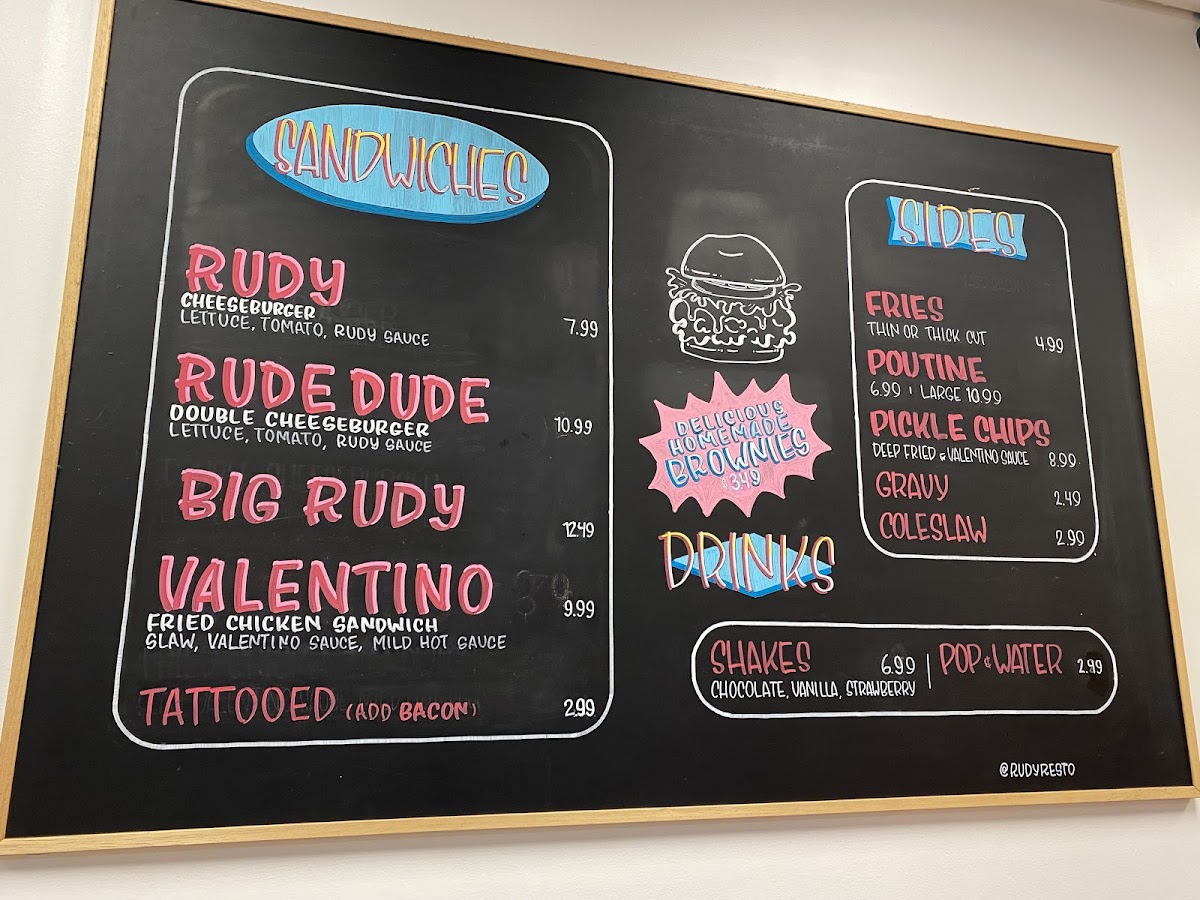 SANDWICHES
RUDY
CHEESEBURGER
LETTUCE, TOMATO, RUDY SAUCE 7.99
RUDE DUDE
DOUBLE CHEESEBURGER
LETTUCE, TOMATO, RUDY SAUCE 10.99
BIG RUDY
12.49
VALENTINO
9.99
FRIED CHICKEN SANDWICH
SLAW, VALENTINO SAUCE, MILD HOT SAUCE
TATTOOED (ADD BACON) 2.99
DELICIOUS
HOMEMADE
BROWNIES
$3.49
SIDES
FRIES
THIN OR THICK CUT 4.99
POUTINE
6.99 | LARGE 10.99
PICKLE CHIPS
DEEP FRIED & VALENTINO SAUCE 8.99
GRAVY 2.49
COLESLAW 2.99
DRINKS
SHAKES 6.99 | POP & WATER 2.99
CHOCOLATE, VANILLA, STRAWBERRY
@RUDYRESTO